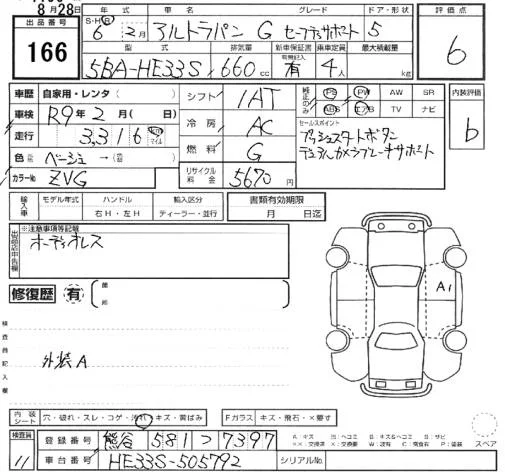 8月28日
出品番号
166
年式 車名 グレード ドア・形状 評価点
S・H・R 6年 2月 アルトラパン G セーフティサポート 5
6
型式 排気量 新車保証書 乗車定員 最大積載量
5BA-HE33S 660cc 有 4人 kg
車歴 自家用・レンタ( )
車検 R9年2月( 日)
走行 3,316km マイル
色 ベージュ → (色替)
カラーNo ZVG
シフト 1AT
冷房 AC
燃料 G
リサイクル料金 5670円
純正のみ PS PW AW SR
ABS エアB TV ナビ
内装評価
b
セールスポイント
プッシュスタートボタン
デュアルカメラブレーキサポート
輸入車 モデル年式 ハンドル 輸入区分
右H・左H ディーラー・並行
書類有効期限
月 日迄
※注意事項等記載
オーディオレス
修復歴 有
A1
検査員記入欄
外装A
内装シート 穴・破れ・スレ・コゲ・汚れ・キズ・黄ばみ
Fガラス キズ・飛石・×要す
検査員 11
登録番号 熊谷 581 つ 7397
車台番号 HE33S-505792
シリアルNo.
スペア